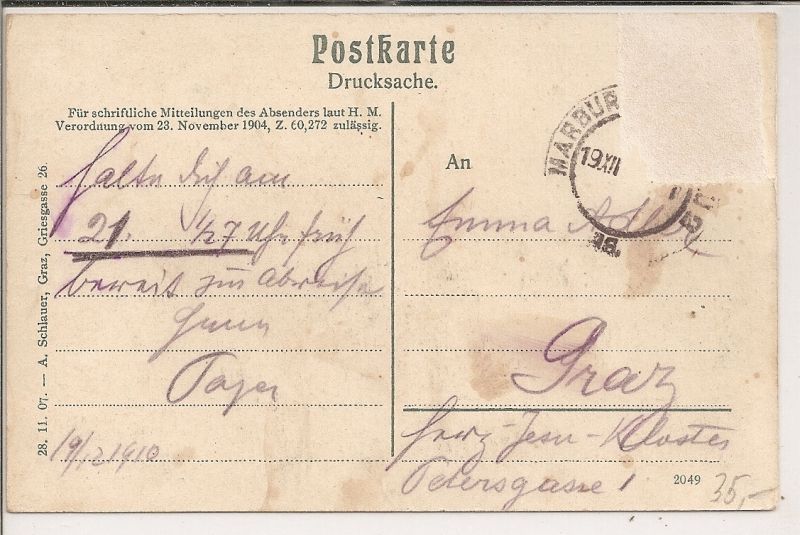 Postkarte
Drucksache.
Für schriftliche Mitteilungen des Absenders laut H. M.
Verordnung vom 23. November 1904, Z. 60,272 zulässig.
Halte dich am
21. ½7 Uhr früh
bereit zur Abreise
19/12 1910
28. 11. 07. — A. Schlauer, Graz, Griesgasse 26.
MARBUR
19 XII
An
Emma
Graz
Herz-Jesu-Kloster
Petersgasse 1
2049
35,-